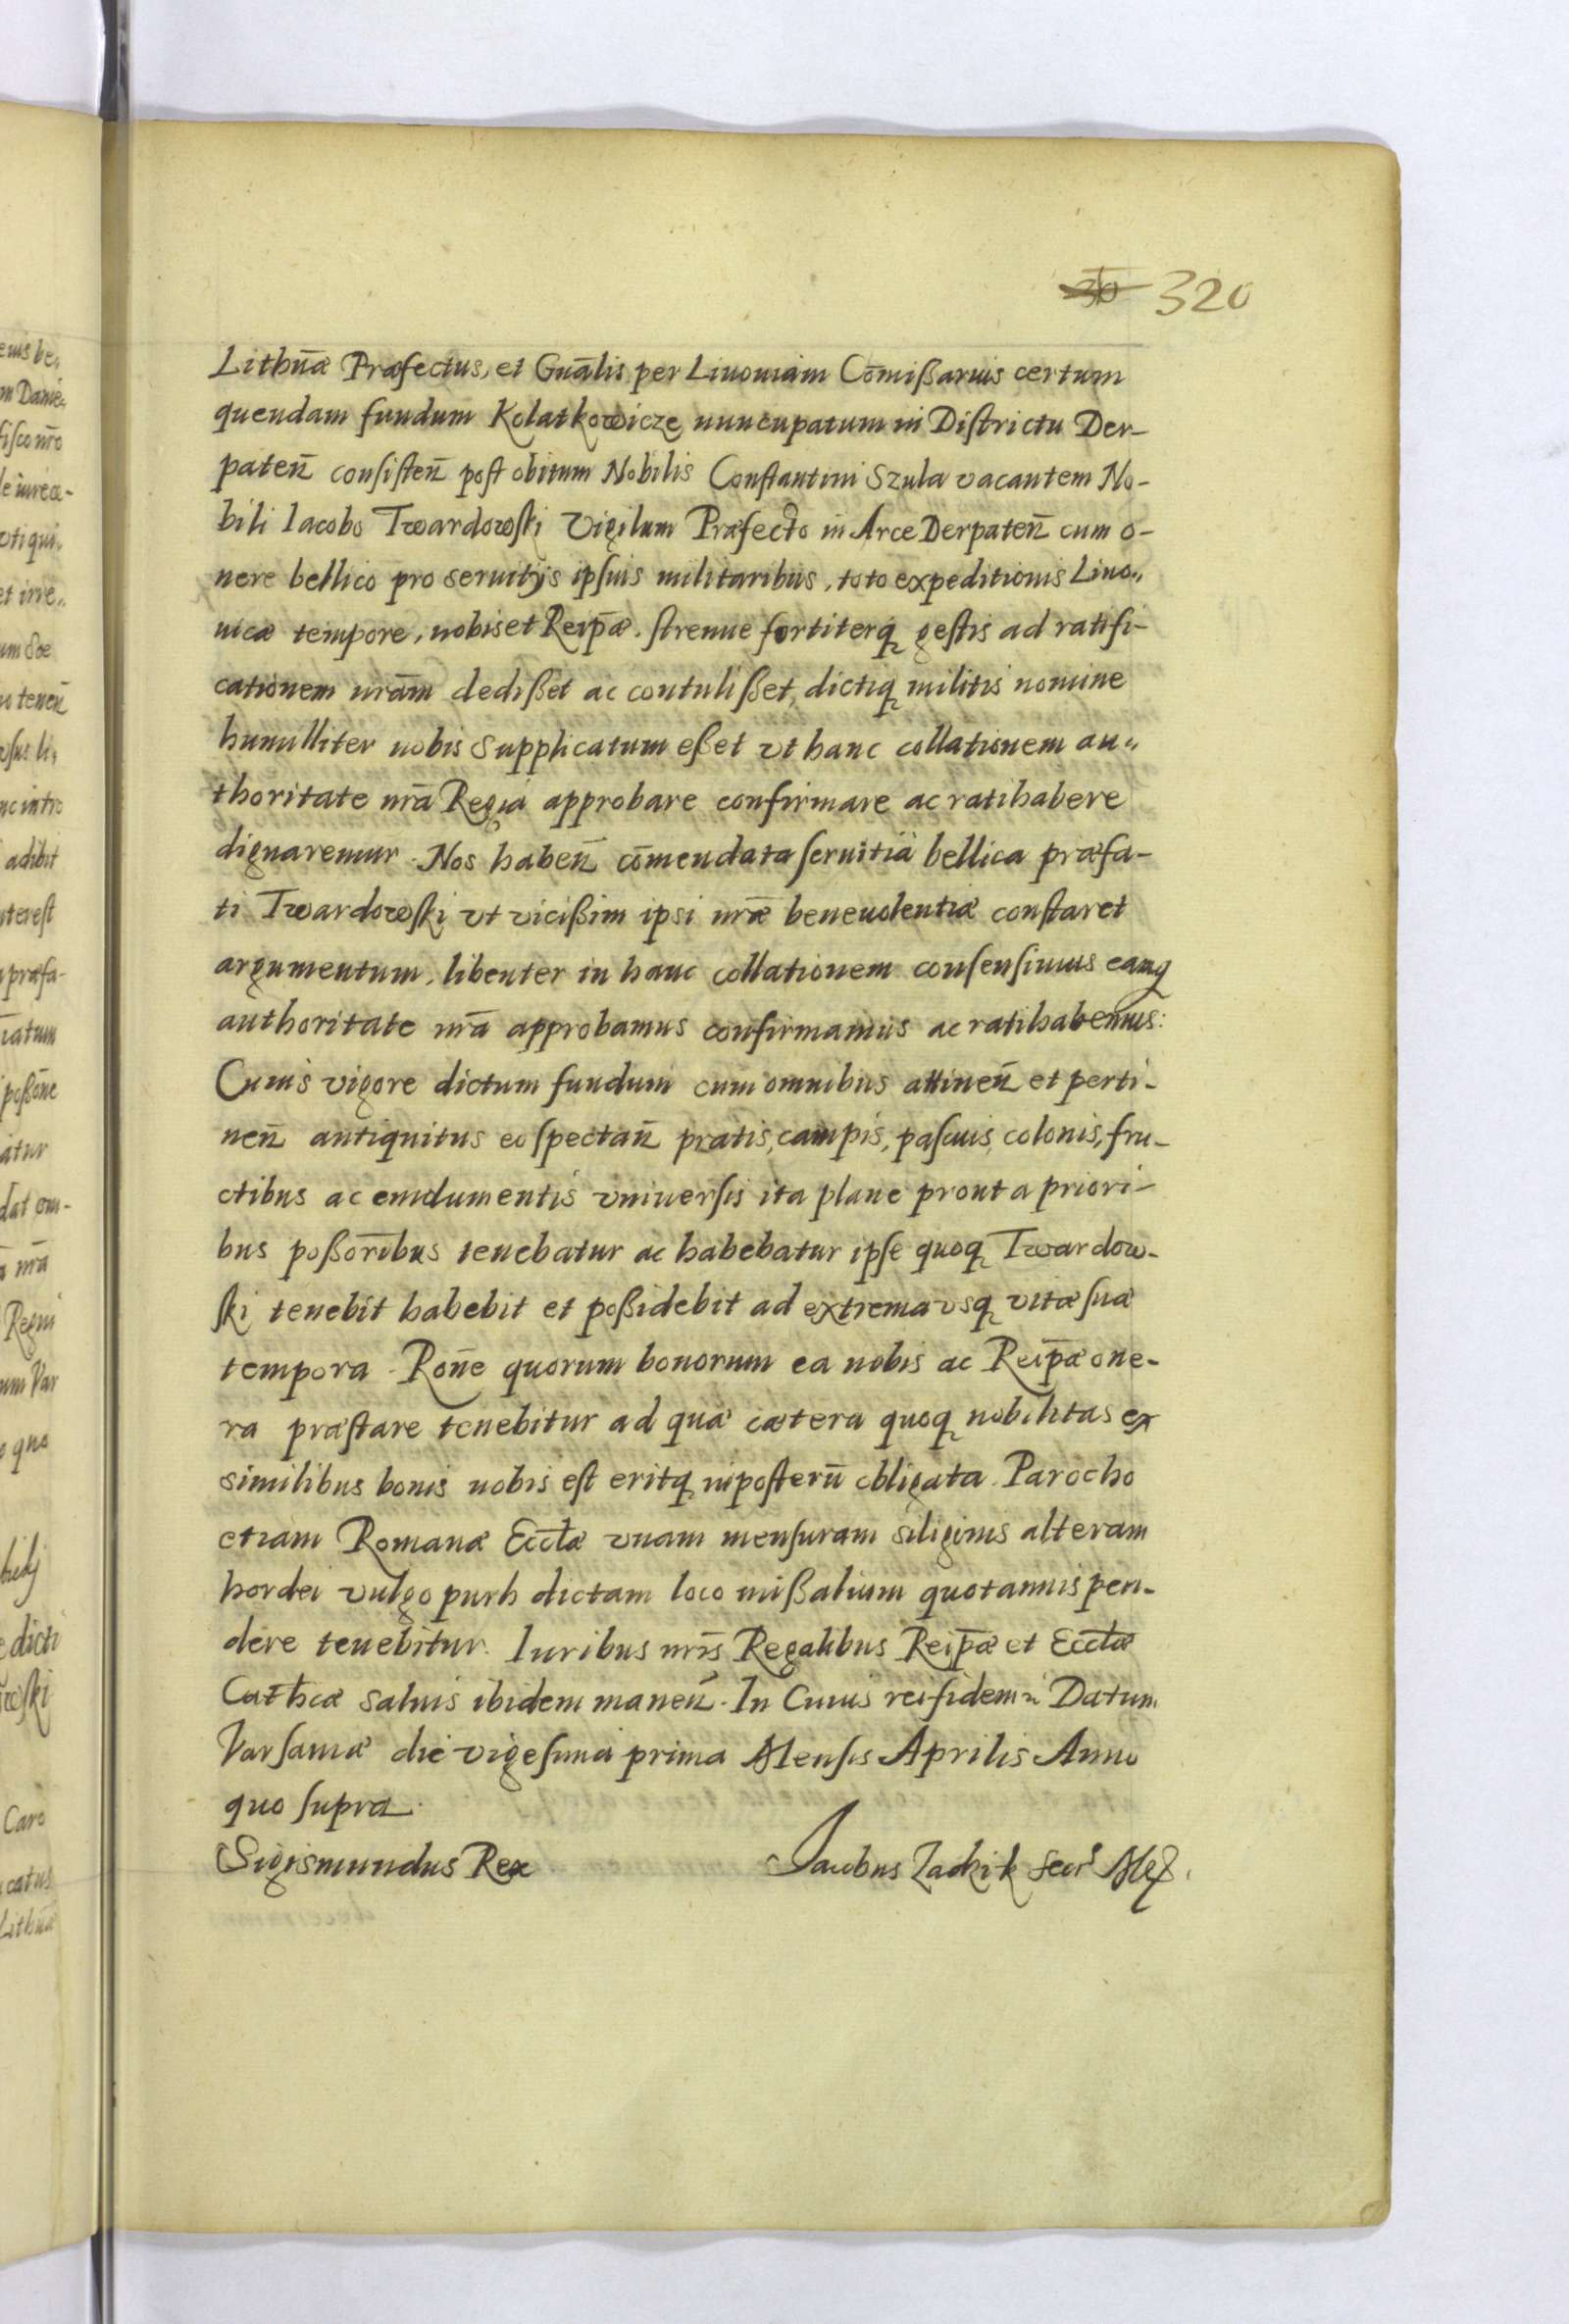 320
Lithuæ Præfectus, et Gnālis per Liuoniam Cōmißarius certum
quendam fundum Kolatkowicze nuncupatum in Districtu Der-
pateñ consisteñ post obitum Nobilis Constantini Szula vacantem No-
bili Iacobo Twardowski Vigilum Præfecto in Arce Derpateñ cum o-
nere bellico pro seruitijs ipsius militaribus, toto expeditionis Liuo„
nicæ tempore, nobis et Reip̄æ. strenue fortiterq gestis ad ratifi-
cationem nrām dedißet ac contulißet, dictiq militis nomine
humilliter nobis supplicatum eßet vt hanc collationem au„
thoritate nrā Regia approbare confirmare ac ratihabere
dignaremur. Nos habeñ cōmendata seruitia bellica præfa-
ti Twardowski vt vicißim ipsi nræ beneuolentiæ constaret
argumentum, libenter in hanc collationem consensimus eamq
authoritate nrā approbamus confirmamus ac ratihabemus:
Cuius vigore dictum fundum cum omnibus attineñ et perti-
neñ antiquitus eo spectañ pratis, campis, pascuis, colonis, fru-
ctibus ac emolumentis vniuersis ita plane prout a priori-
bus poßoribus tenebatur ac habebatur ipse quoq Twardow-
ski tenebit habebit et poßidebit ad extrema vsq vitæ suæ
tempora. Rōne quorum bonorum ea nobis ac Reip̄æ one-
ra præstare tenebitur ad quæ cætera quoq nobilitas ex
similibus bonis nobis est eritq inposterū obligata. Parocho
etiam Romanæ Ecctæ vnam mensuram siliginis alteram
hordei vulgo purh dictam loco mißalium quotannis pen-
dere tenebitur. Iuribus nrīs Regalibus Reip̄æ et Ecctæ
Cathcæ saluis ibidem maneñ. In Cuius rei fidem Datum
Varsauiæ die vigesima prima Mensis Aprilis Anno
quo supra.
Sigismundus Rex Jacobus Zadzik Secrs